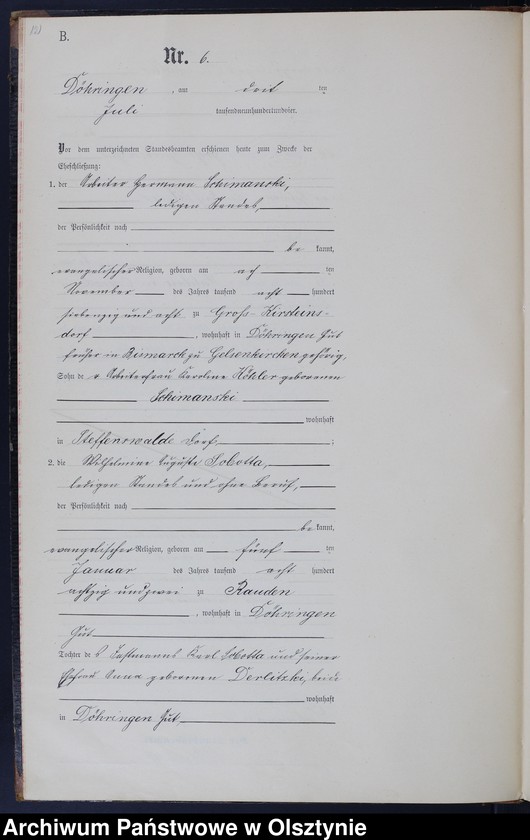 121
B.
Nr. 6.
Döhringen, am drei ten
Juli tausendneunhundertundvier.
Vor dem unterzeichneten Standesbeamten erschienen heute zum Zwecke der
Eheschließung:
1. der Arbeiter Hermann Schimanski,
ledigen Standes,
der Persönlichkeit nach
be kannt,
evangelischer Religion, geboren am ach ten
November des Jahres tausend acht hundert
siebenzig und acht zu Groß-Kirsteins-
dorf, wohnhaft in Döhringen Gut
früher in Bismarck zu Gelsenkirchen gehörig,
Sohn der Arbeiterfrau Karoline Köhler geborenen
Schimanski
wohnhaft
in Steffenswalde Dorf, ;
2. die Wilhelmine Auguste Sobotta,
ledigen Standes und ohne Beruf,
der Persönlichkeit nach
be kannt,
evangelischer Religion, geboren am fünf ten
Januar des Jahres tausend acht hundert
achtzig und zwei zu Rauden
, wohnhaft in Döhringen
Gut
Tochter des Instmanns Karl Sobotta und seiner
Ehefrau Anna geborenen Derlitzki, beide
wohnhaft
in Döhringen Gut
Archiwum Państwowe w Olsztynie